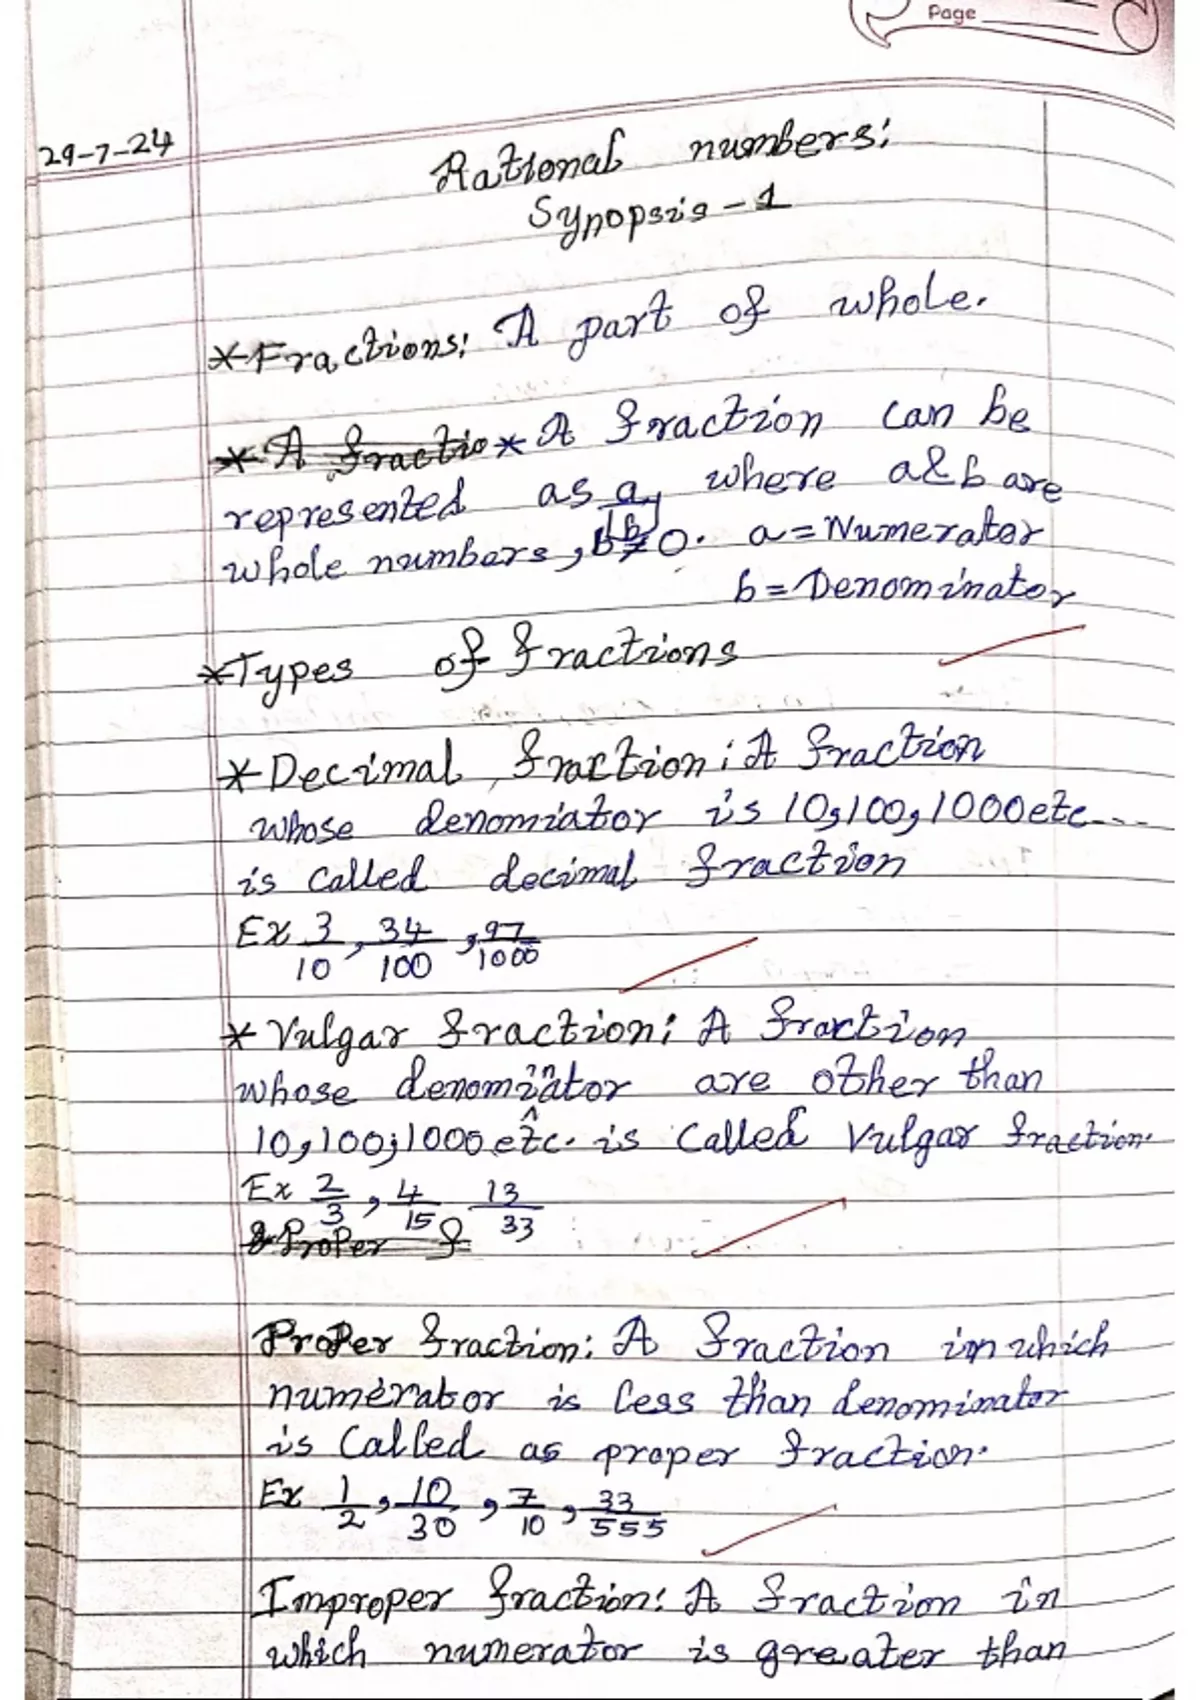 Page
29-7-24
Rational numbers:
Synopsis-1
*Fractions: A part of whole.
*A fractio * A fraction can be
represented as a/b, where a&b are
whole numbers, b≠0. a=Numerator
b=Denominator
*Types of fractions
*Decimal fraction: A fraction
whose denomiator is 10,100,1000etc....
is called decimal fraction
Ex 3/10, 34/100, 97/1000
* Vulgar fraction: A fraction
whose denominator are other than
10,100,1000 etc. is called Vulgar fraction.
Ex 2/3, 4/15 13/33
Proper f
Proper fraction: A fraction in which
numerator is less than denominator
is called as proper fraction.
Ex 1/2, 10/30, 7/10, 33/555
Improper fraction: A fraction in
which numerator is greater than